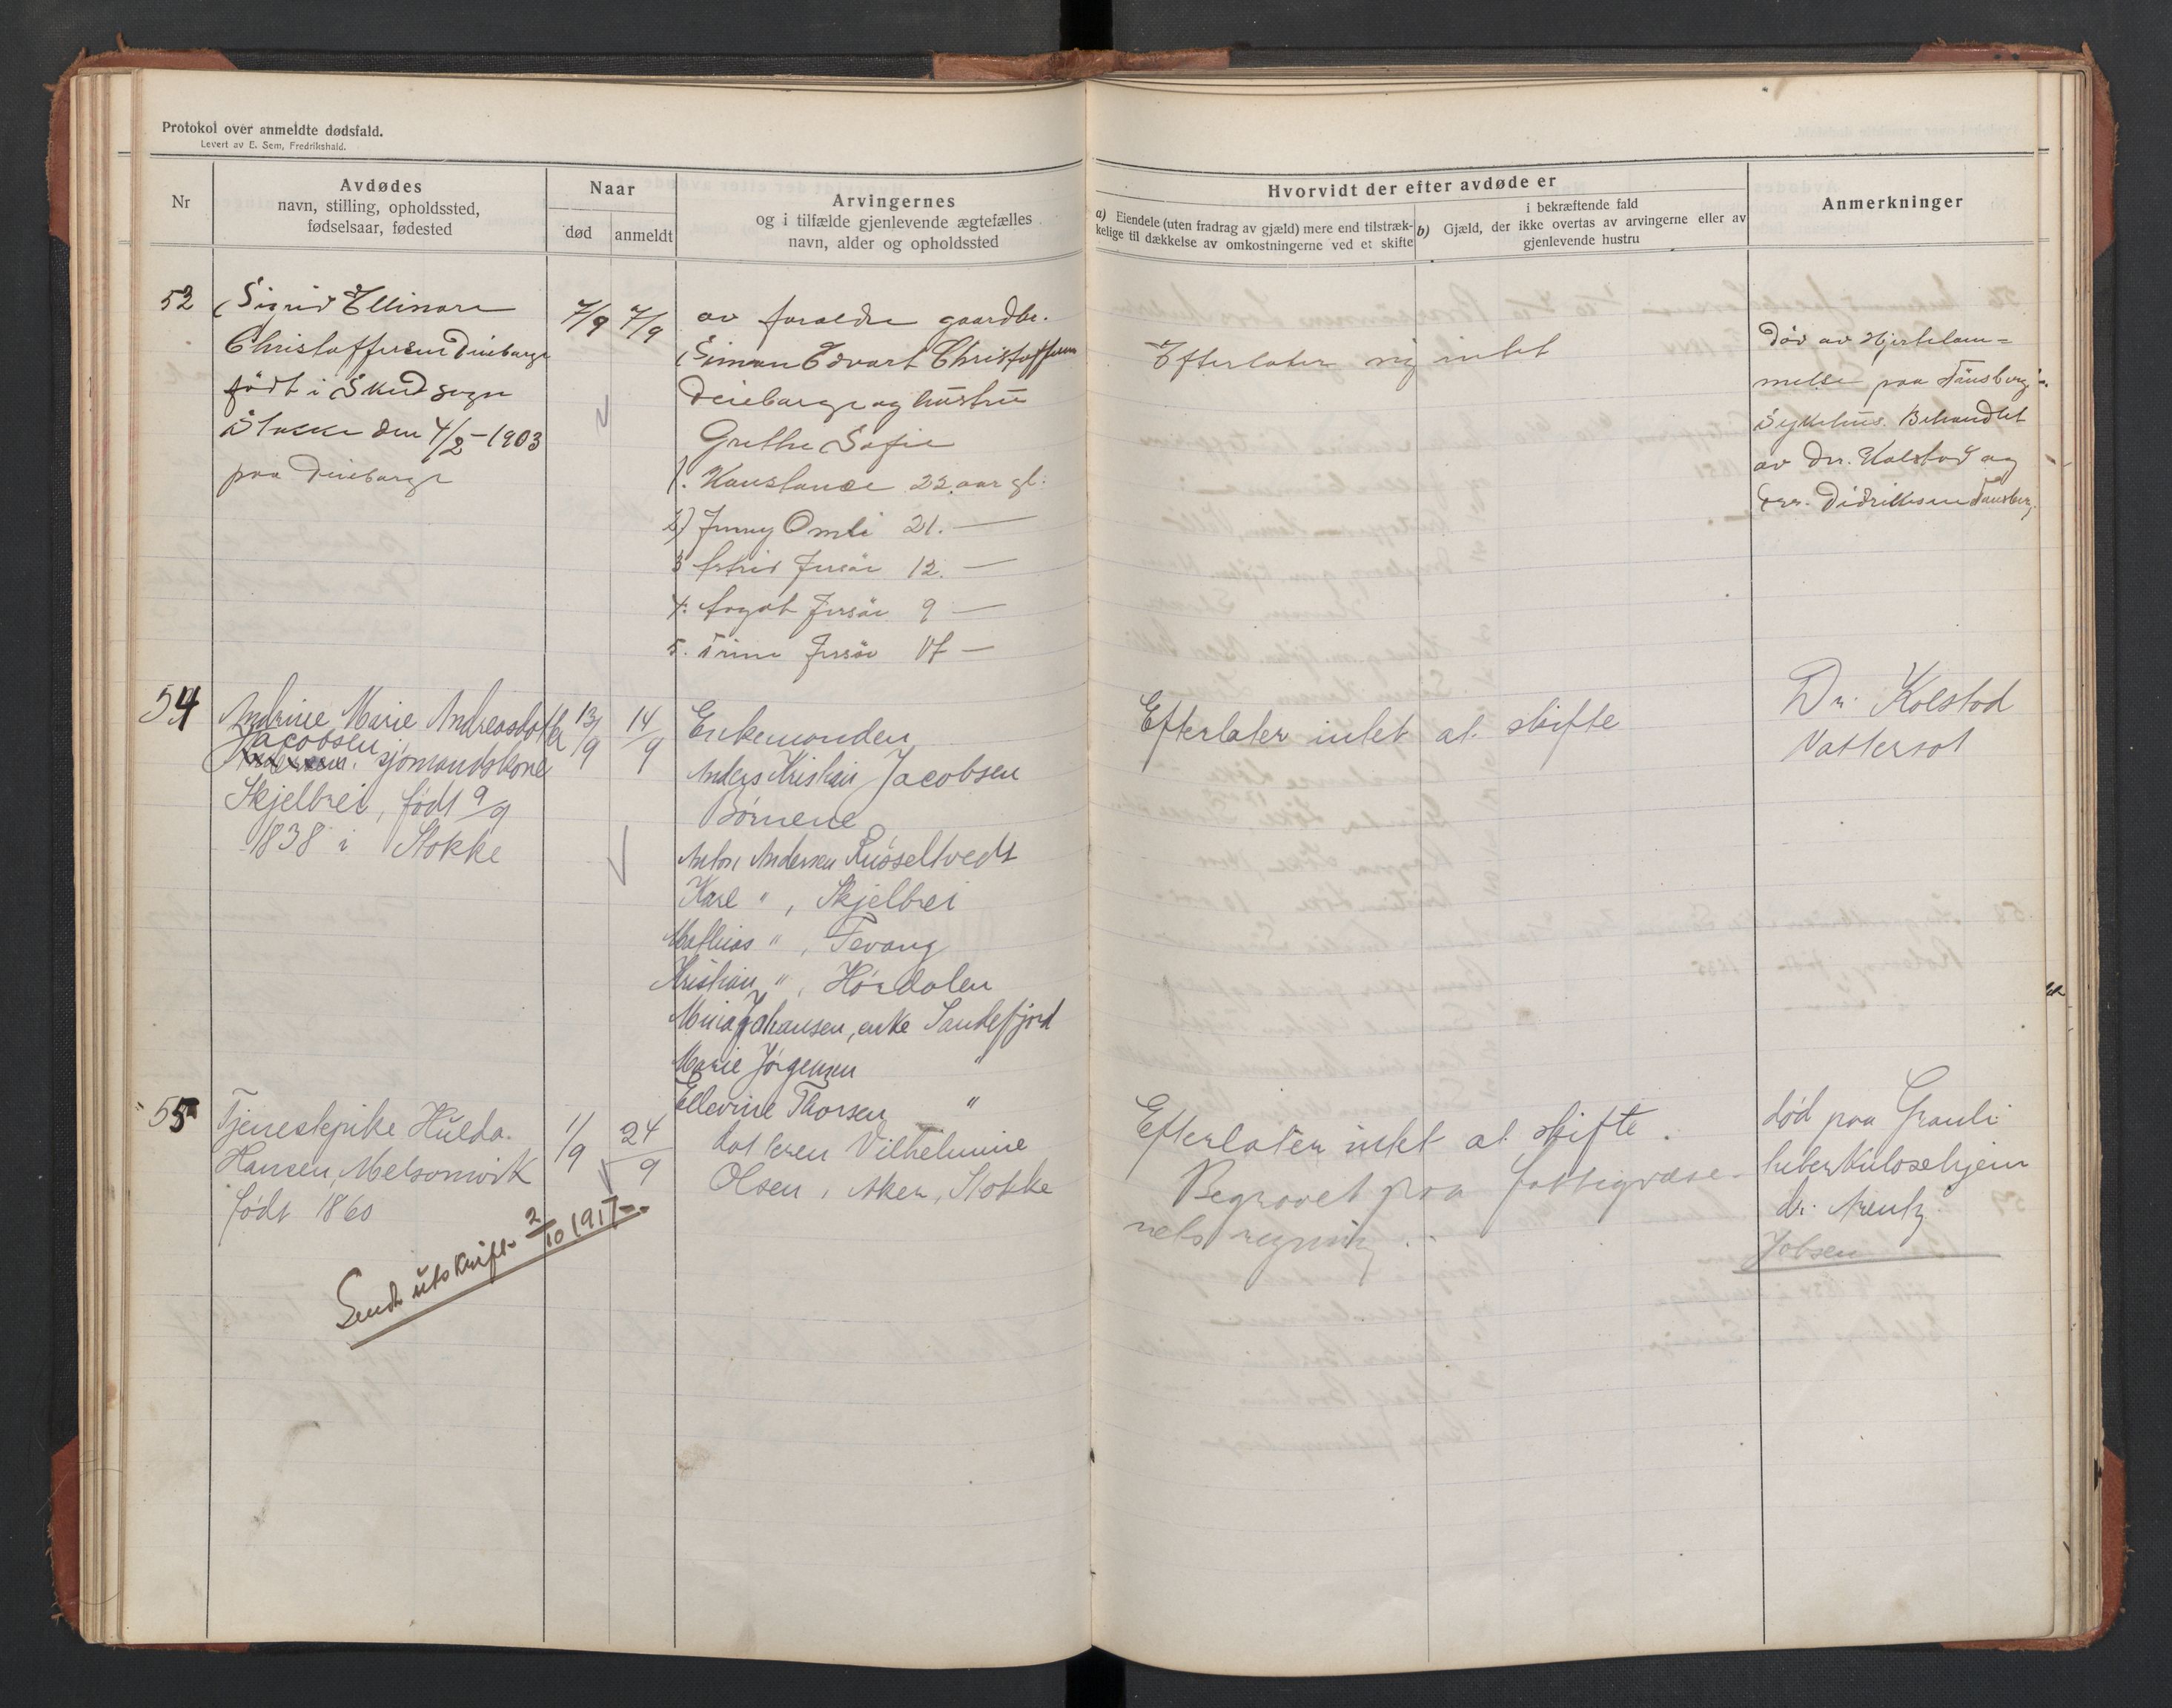 Protokol over anmeldte dødsfald.
Levert av E. Sem, Fredrikshald.
Nr
Avdødes
navn, stilling, opholdssted,
fødselsaar, fødested
Naar
død
anmeldt
Arvingernes
og i tilfælde gjenlevende ægtefælles
navn, alder og opholdssted
Hvorvidt der efter avdøde er
a) Eiendele (uten fradrag av gjæld) mere end tilstræk-
kelige til dækkelse av omkostningerne ved et skifte
i bekræftende fald
b) Gjæld, der ikke overtas av arvingerne eller av
gjenlevende hustru
Anmerkninger
53
Sigrid Ellinore
Christoffersen
født i Skudsogn
Stokke den 4/2-1903
paa
7/9 7/9
av foraeldre gaardbr.
Simon Edvart Christoffersen
og hustru
Grethe Sofie
1. Konstance 22 aar gl.
2) Jenny Omli 21. —
3 Astrid Jersøe 12. —
4. Aagot Jersøe 9 —
5. Trine Jersøe 17 —
Efterlater sig intet
Død av Hjertelam=
melse paa Tønsberg
Sykehus. Behandlet
av Dr. Kolstad og
Didriksen Tønsberg
54
Andrine Marie Andreasdatter
Jacobsen
sjømandskone
Skjelbrei, født 9/9
1838 i Stokke
13/9
14/9
Enkemanden
Anders Kristian Jacobsen
Børnene
Anton Andersen Russeltvedt
Karl " , Skjelbrei
Mathias " , Tevang
Kristian " , Hørdalen
Mina Johansen, enke Sandefjord
Marie Jørgensen "
Ellevine Thorsen "
Efterlater intet at skifte
Dr. Kolstad
Vattersot
55
Tjenestepike Hulda
Hansen, Melsomvik
født 1860
1/9
24/9
datteren Vilhelmine
Olsen, Aker, Stokke
Efterlater intet at skifte.
Begravet paa fattigvæse-
nets regning.
død paa Grauli
tuberkulosehjem
dr. Arentz
Jobsen
Sendt utskrift 2/10 1917.